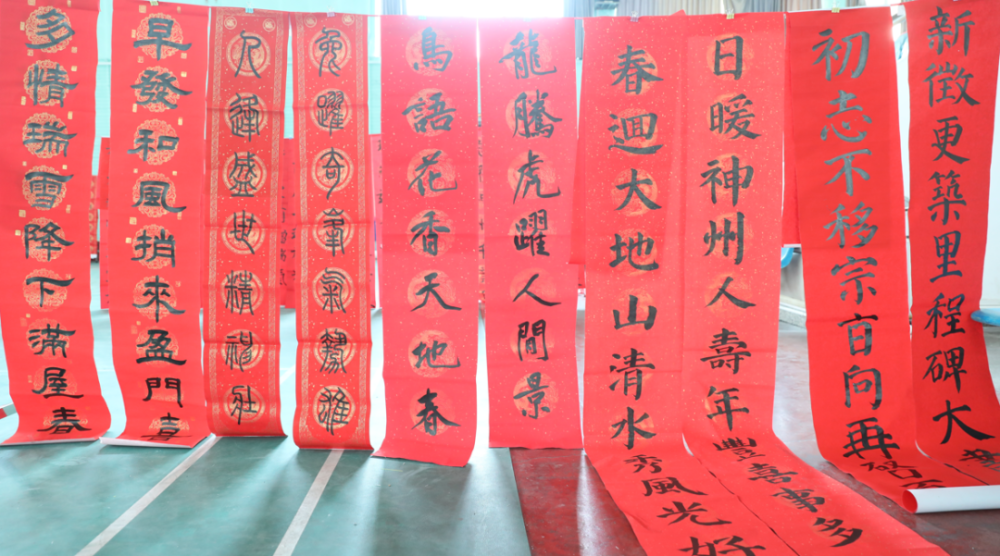 新徵更築里程碑大
初志不移宗旨向再
日暖神州人壽年豐喜事多
春迴大地山清水秀風光好
龍騰虎躍人間景
鳥語花香天地春
兔躍奇峯氣勢雄
人逢盛世精神壯
早發和風捎來盈門喜
多情瑞雪降下滿屋春